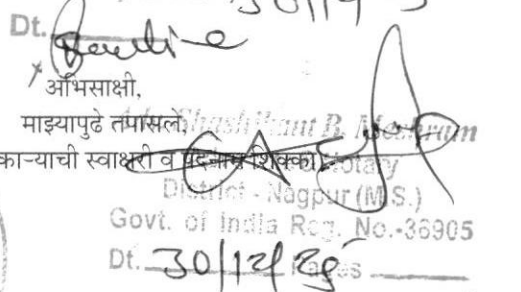 Dt.
अभिसाक्षी,
माझ्यापुढे तपासले,
काऱ्याची स्वाक्षरी व पदनाम शिक्का
Shashikant B. Meshram
Notary
District - Nagpur (M.S.)
Govt. of India Reg. No.-36905
Dt. 30/12/25